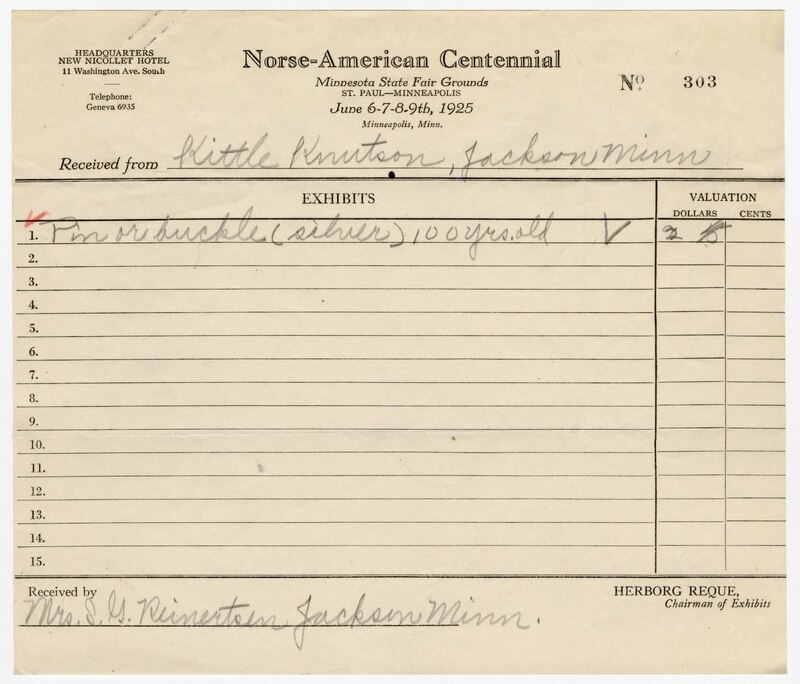 HEADQUARTERS
NEW NICOLLET HOTEL
11 Washington Ave. South
Telephone:
Geneva 6935
Norse-American Centennial
Minnesota State Fair Grounds
ST. PAUL—MINNEAPOLIS
June 6-7-8-9th, 1925
Minneapolis, Minn.
No. 303
Received from Kittle Knutson, Jackson Minn
EXHIBITS
VALUATION
DOLLARS CENTS
1. Pin or buckle (silver) 100 yrs. old V
2.
3.
4.
5.
6.
7.
8.
9.
10.
11.
12.
13.
14.
15.
Received by
Mrs. S. G. Reinertsen Jackson Minn.
HERBORG REQUE,
Chairman of Exhibits